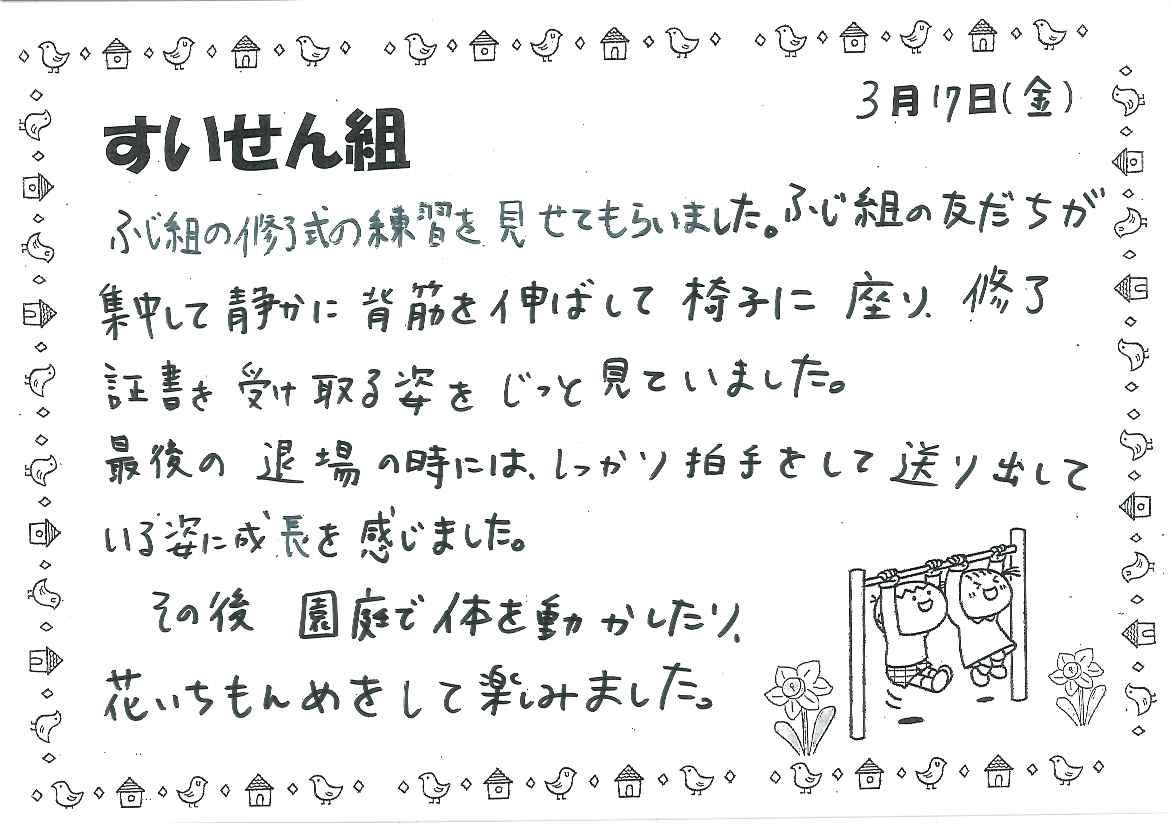 3月17日(金)
すいせん組
ふじ組の修了式の練習を見せてもらいました。ふじ組の友だちが
集中して静かに背筋を伸ばして椅子に座り、修了
証書を受け取る姿をじっと見ていました。
最後の退場の時には、しっかり拍手をして送り出して
いる姿に成長を感じました。
その後 園庭で体を動かしたり、
花いちもんめをして楽しみました。